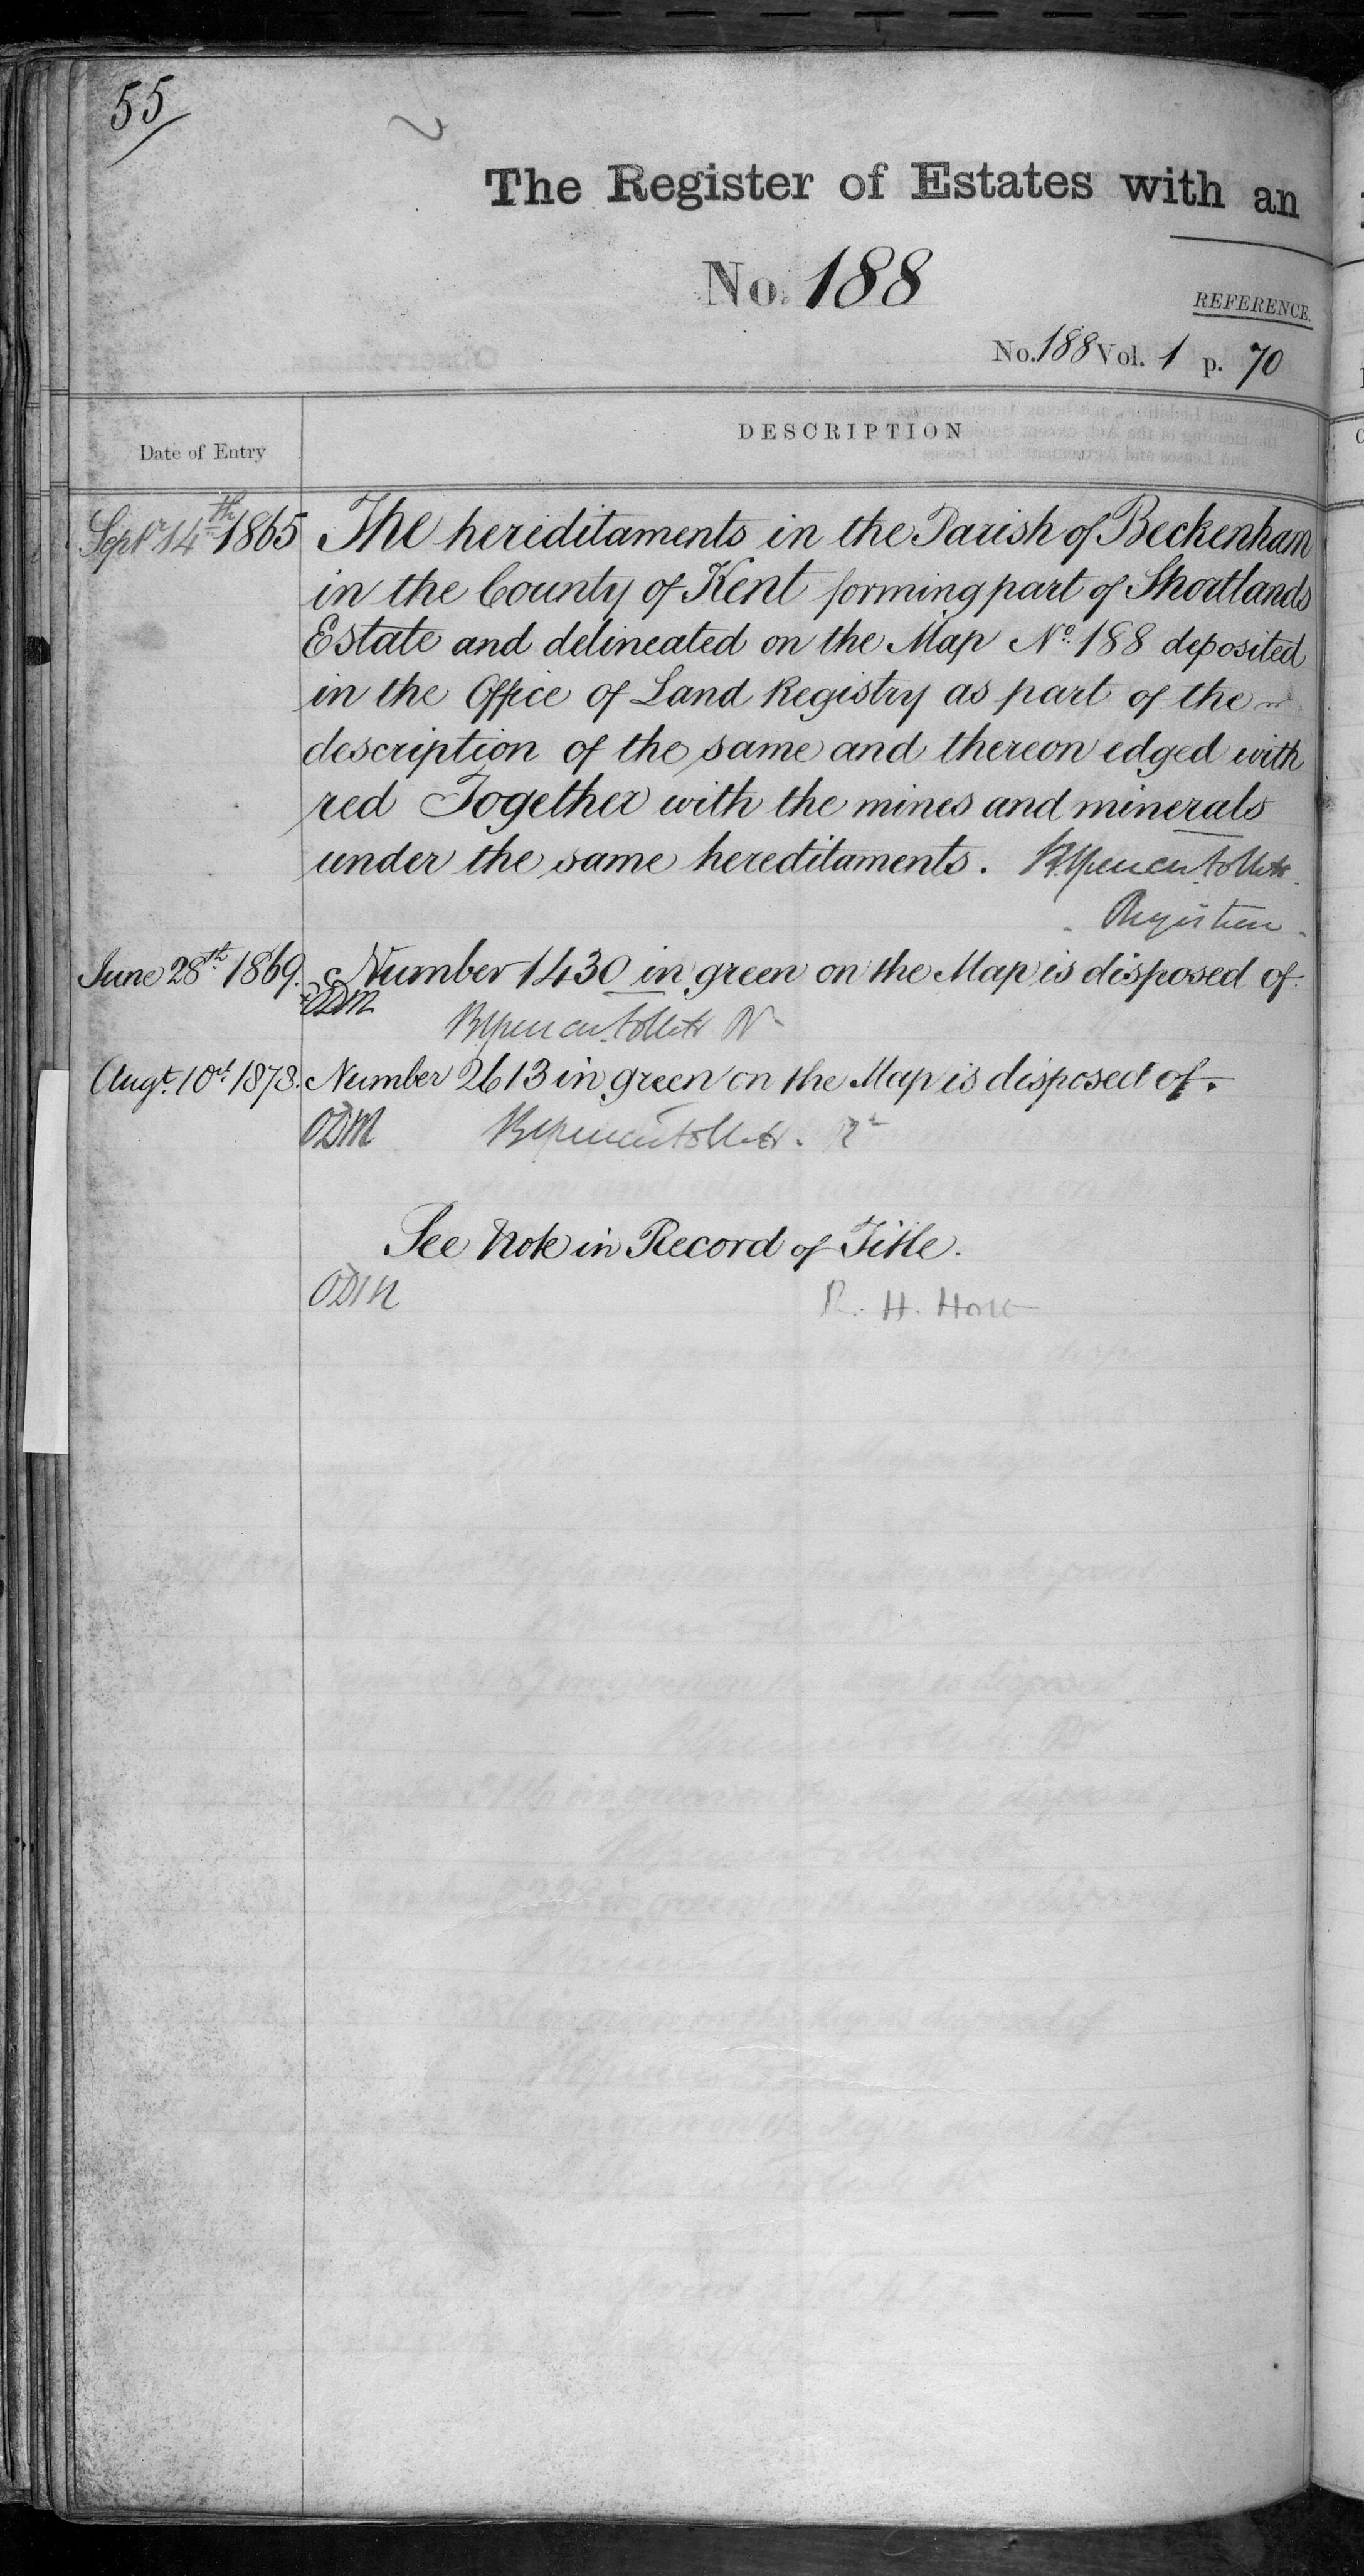 55
The Register of Estates with an
No. 188
REFERENCE.
No. 188 Vol. 1 p. 70
Date of Entry
DESCRIPTION
Septr 14th 1865 The hereditaments in the Parish of Beckenham
in the County of Kent forming part of Shortlands
Estate and delineated on the Map No. 188 deposited
in the Office of Land Registry as part of the
description of the same and thereon edged with
red Together with the mines and minerals
under the same hereditaments. Brent Spencer Follett
Registrar
June 28th 1869. Number 1430 in green on the Map is disposed of.
ODM
Augt. 10th 1873. Number 2613 in green on the Map is disposed of.
ODM
See Note in Record of Title.
ODM R. H. Holt